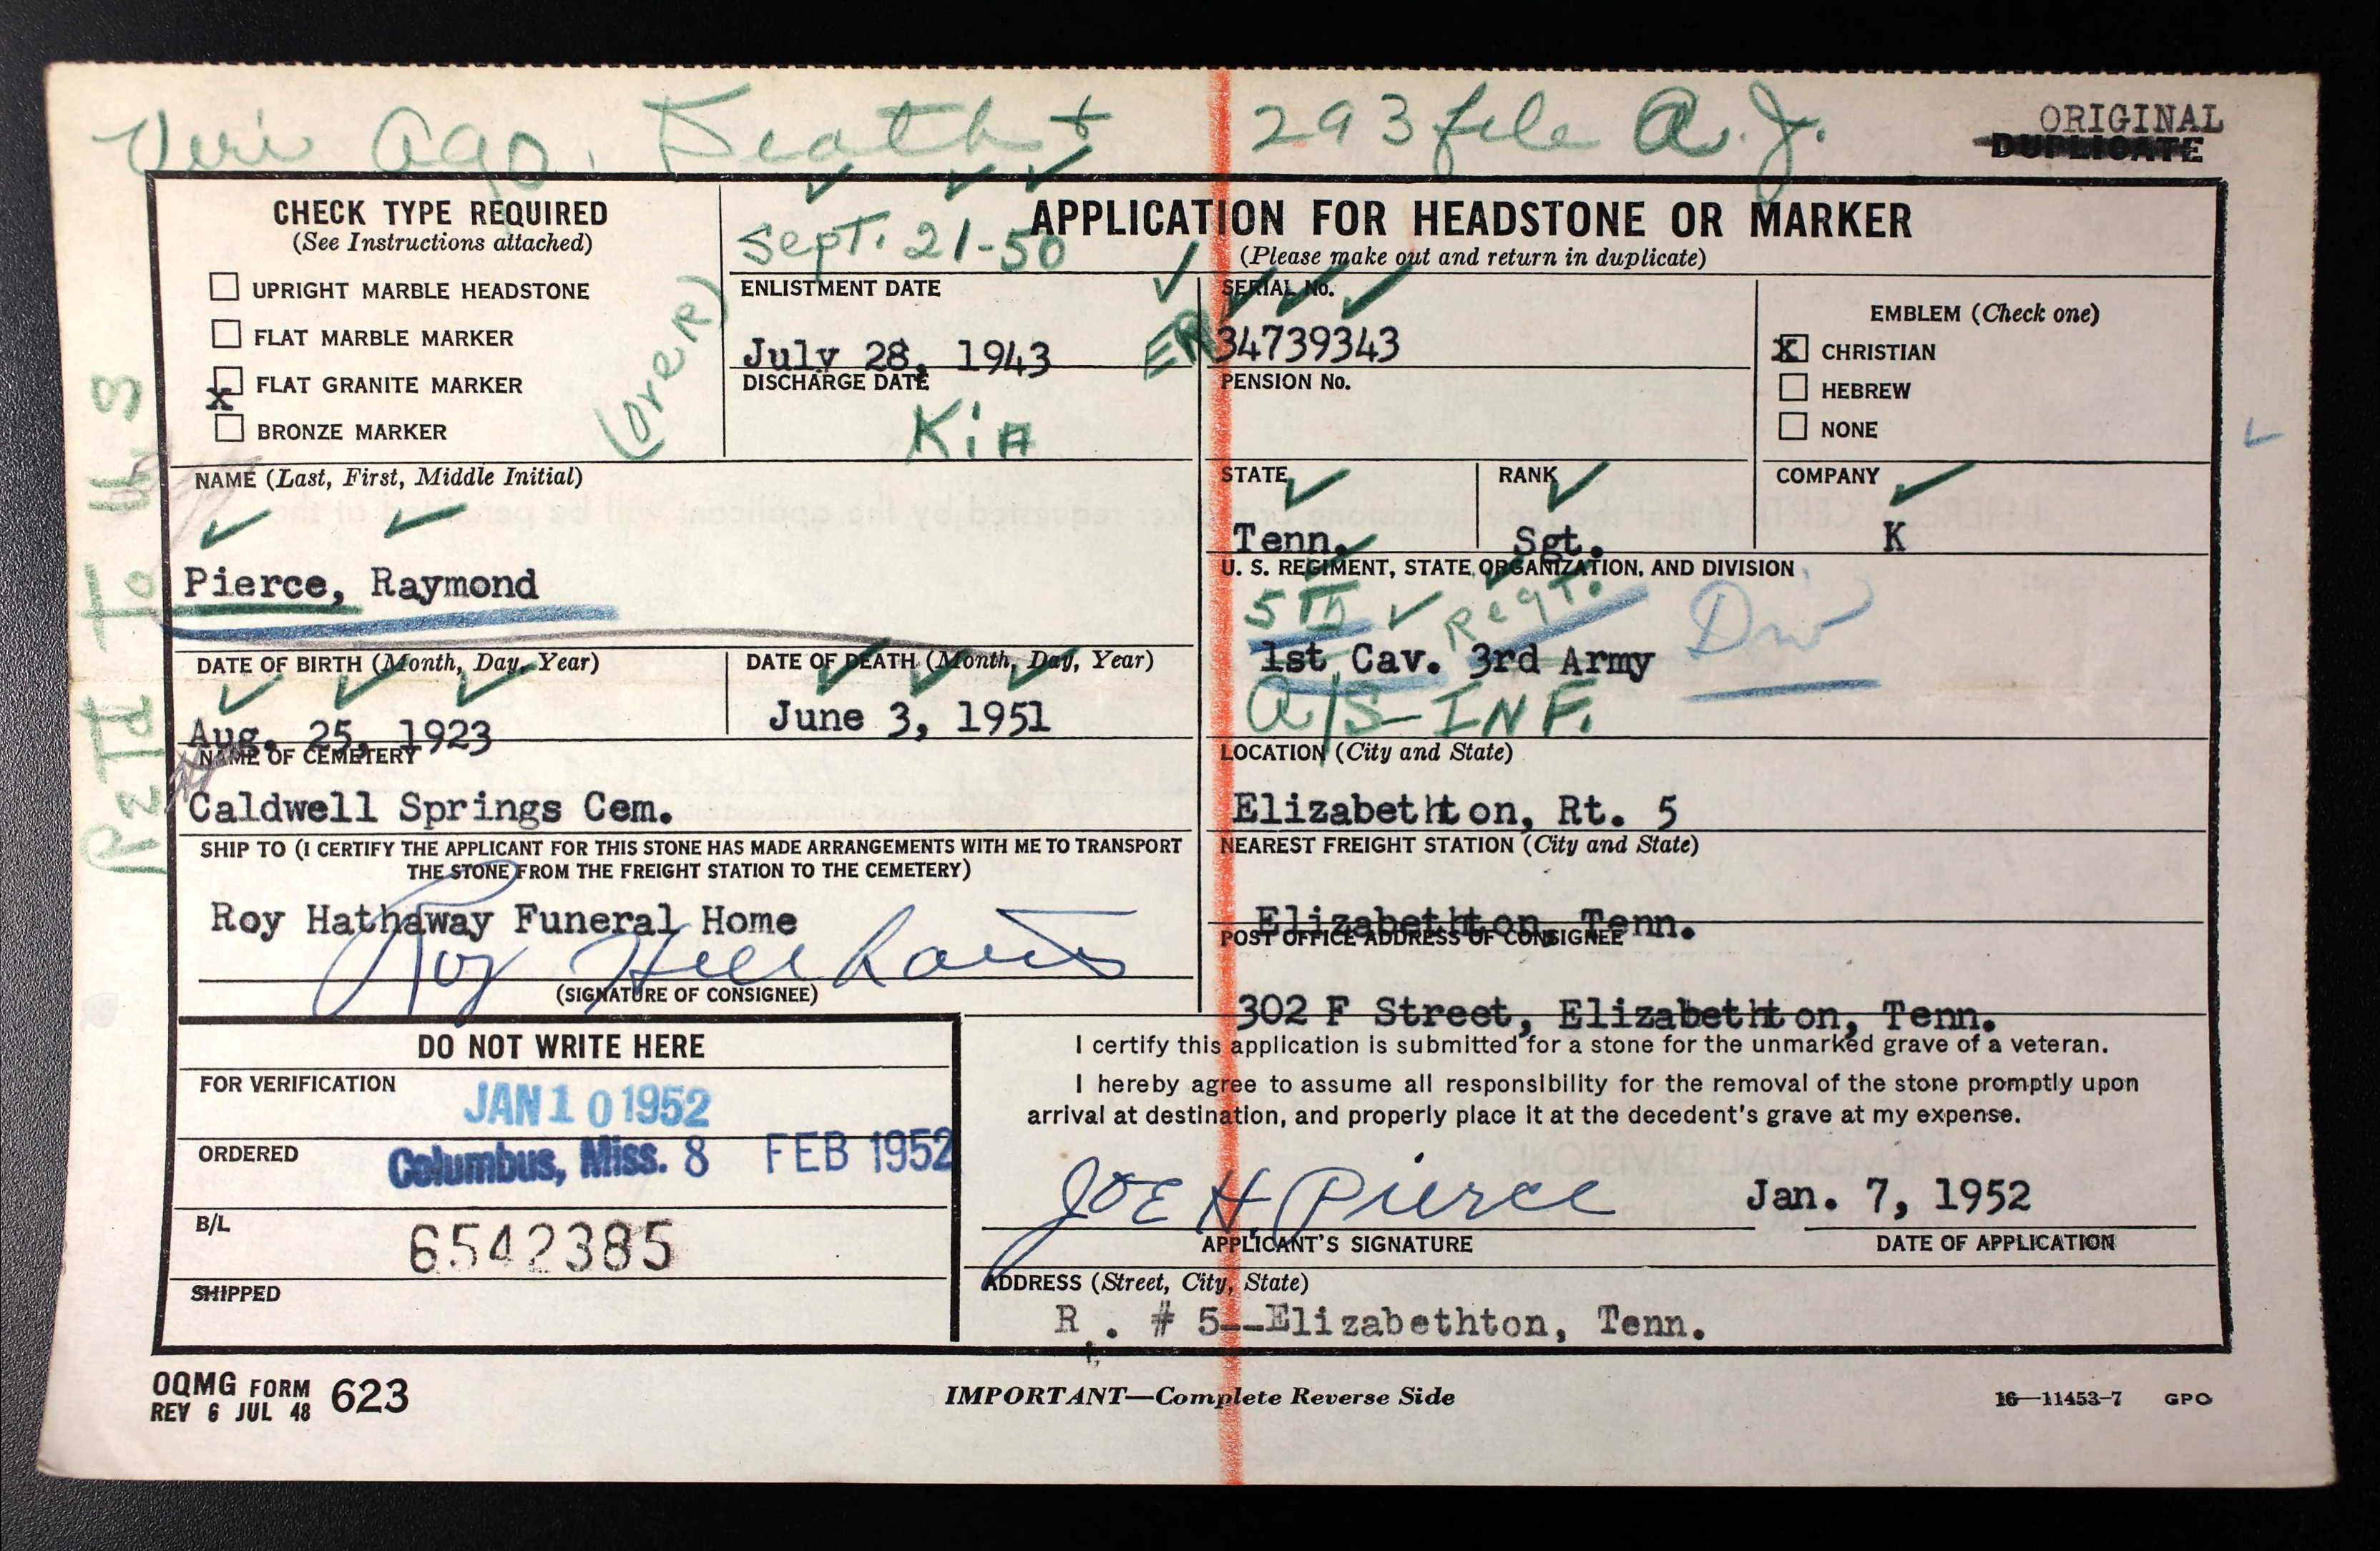 Veri Ago. Death + 293 file A.J.
ORIGINAL
DUPLICATE
CHECK TYPE REQUIRED
(See Instructions attached)
UPRIGHT MARBLE HEADSTONE
FLAT MARBLE MARKER
X FLAT GRANITE MARKER
BRONZE MARKER
(OVER)
Sept. 21-50
APPLICATION FOR HEADSTONE OR MARKER
(Please make out and return in duplicate)
ENLISTMENT DATE
July 28, 1943
DISCHARGE DATE
KiA
SERIAL No.
ER 34739343
PENSION No.
EMBLEM (Check one)
X CHRISTIAN
HEBREW
NONE
NAME (Last, First, Middle Initial)
Pierce, Raymond
STATE
Tenn.
RANK
Sgt.
COMPANY
K
U. S. REGIMENT, STATE ORGANIZATION, AND DIVISION
5th Regt. Div
1st Cav. 3rd Army
A/S-INF.
DATE OF BIRTH (Month, Day, Year)
Aug. 25, 1923
DATE OF DEATH (Month, Day, Year)
June 3, 1951
NAME OF CEMETERY
Caldwell Springs Cem.
LOCATION (City and State)
Elizabethton, Rt. 5
SHIP TO (I CERTIFY THE APPLICANT FOR THIS STONE HAS MADE ARRANGEMENTS WITH ME TO TRANSPORT
THE STONE FROM THE FREIGHT STATION TO THE CEMETERY)
Roy Hathaway Funeral Home
Roy
(SIGNATURE OF CONSIGNEE)
NEAREST FREIGHT STATION (City and State)
Elizabethton, Tenn.
POST OFFICE ADDRESS OF CONSIGNEE
302 F Street, Elizabethton, Tenn.
DO NOT WRITE HERE
FOR VERIFICATION
JAN 10 1952
ORDERED
Columbus, Miss. 8 FEB 1952
B/L
6542385
SHIPPED
I certify this application is submitted for a stone for the unmarked grave of a veteran.
I hereby agree to assume all responsibility for the removal of the stone promptly upon
arrival at destination, and properly place it at the decedent's grave at my expense.
JOE H. Pierce
Jan. 7, 1952
APPLICANT'S SIGNATURE
DATE OF APPLICATION
ADDRESS (Street, City, State)
R. # 5--Elizabethton, Tenn.
OQMG FORM 623
REV 6 JUL 48
IMPORTANT—Complete Reverse Side
16—11453-7 GPO